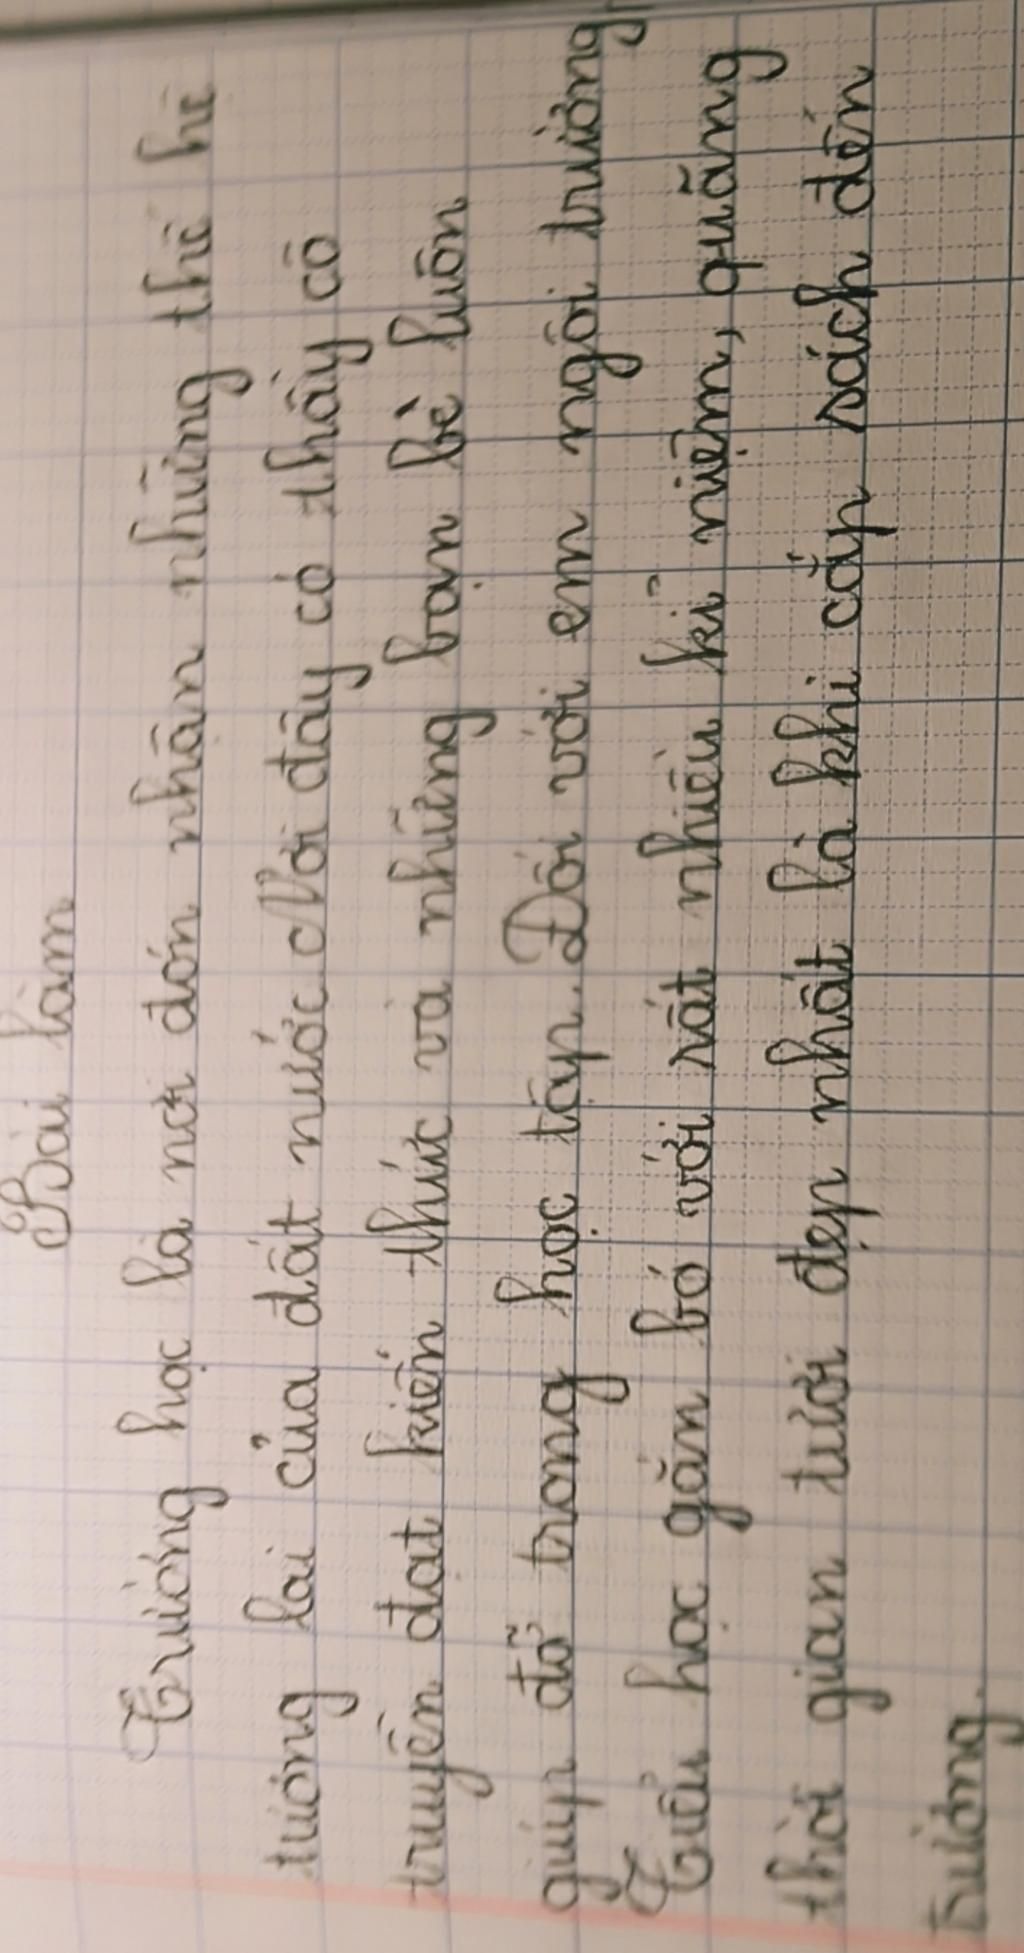 Bài làm
Trường học là nơi đón nhận những thế hệ
tương lai của đất nước. Nơi đây có thầy cô
truyền đạt kiến thức và những bạn bè luôn
giúp đỡ trong học tập. Đối với em ngôi trường
Tiểu học gắn bó với rất nhiều kỉ niệm, quãng
thời gian tươi đẹp nhất là khi cắp sách đến
trường.